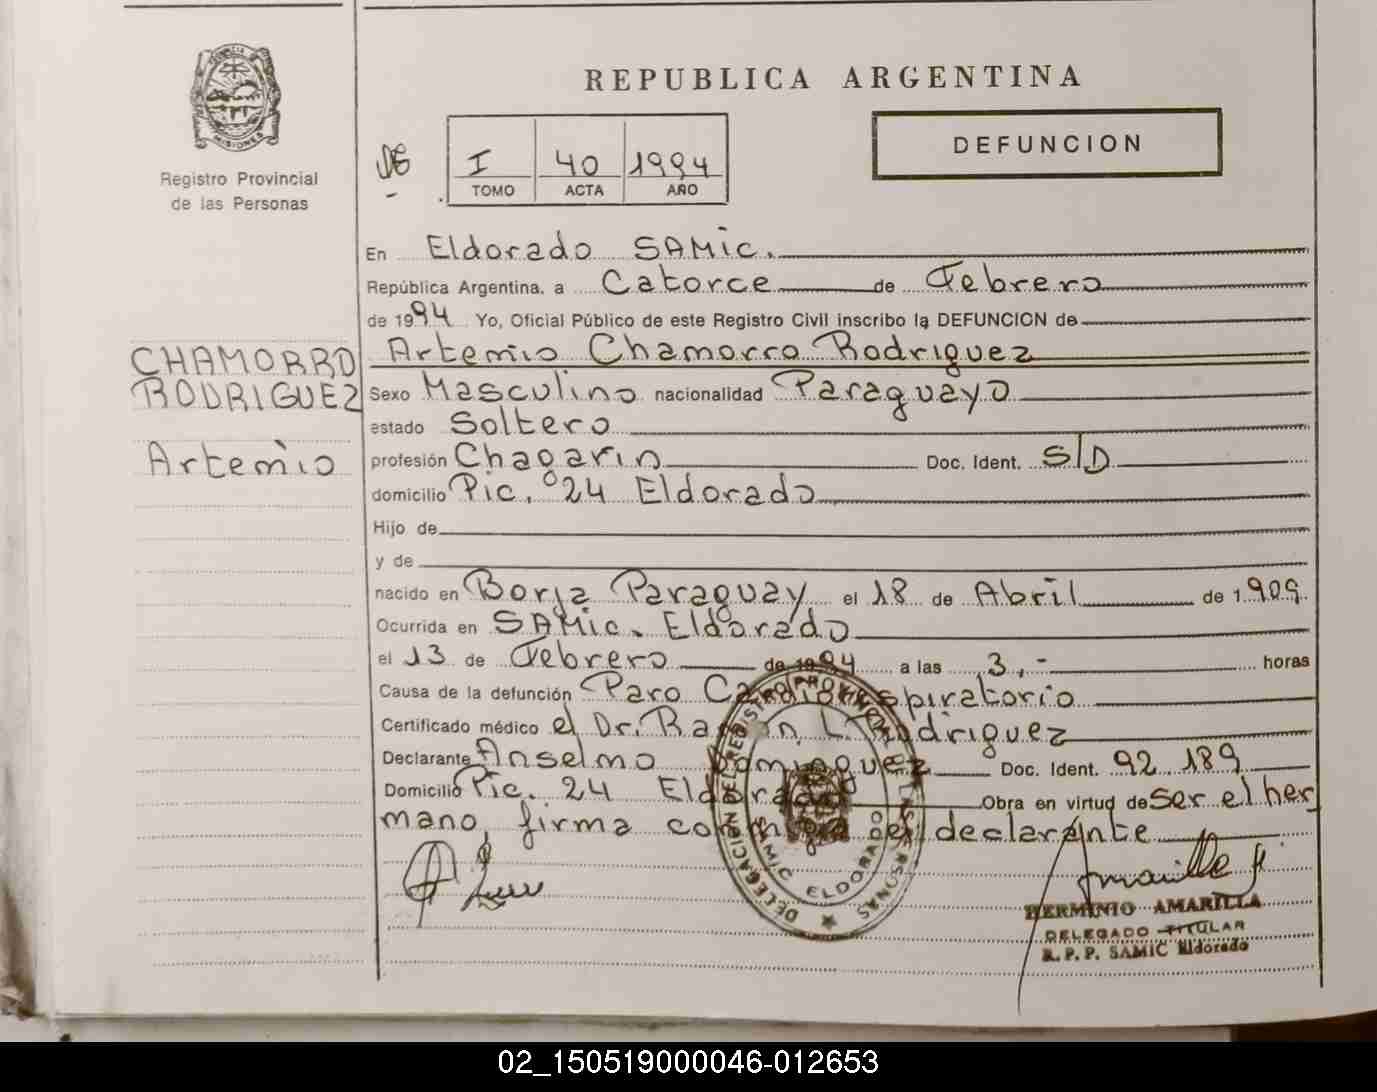 REPUBLICA ARGENTINA
DEFUNCION
PROVINCIA DE MISIONES
Registro Provincial
de las Personas
I 40 1994
TOMO ACTA AÑO
En Eldorado SAMic.
República Argentina, a Catorce de Febrero
de 1994 Yo, Oficial Público de este Registro Civil inscribo la DEFUNCION de
CHAMORRO
RODRIGUEZ
Artemio
Artemio Chamorro Rodriguez
Sexo Masculino nacionalidad Paraguayo
estado Soltero
profesión Chagarin Doc. Ident. S/D
domicilio Pic. 24 Eldorado
Hijo de
y de
nacido en Borja Paraguay el 18 de Abril de 1.909
Ocurrida en SAMic. Eldorado
el 13 de Febrero de 1994 a las 3,- horas
Causa de la defunción Paro Cardiorespiratorio
Certificado médico el Dr. Ramon L. Rodriguez
Declarante Anselmo Dominguez Doc. Ident. 92.189
Domicilio Pic. 24 Eldorado Obra en virtud de Ser el her
mano, firma conmigo el declarante
DELEGACION DEL REGISTRO PROVINCIAL DE LAS PERSONAS
SAMIC ELDORADO
HERMINIO AMARILLA
DELEGADO TITULAR
R. P. P. SAMIC Eldorado
02_150519000046-012653